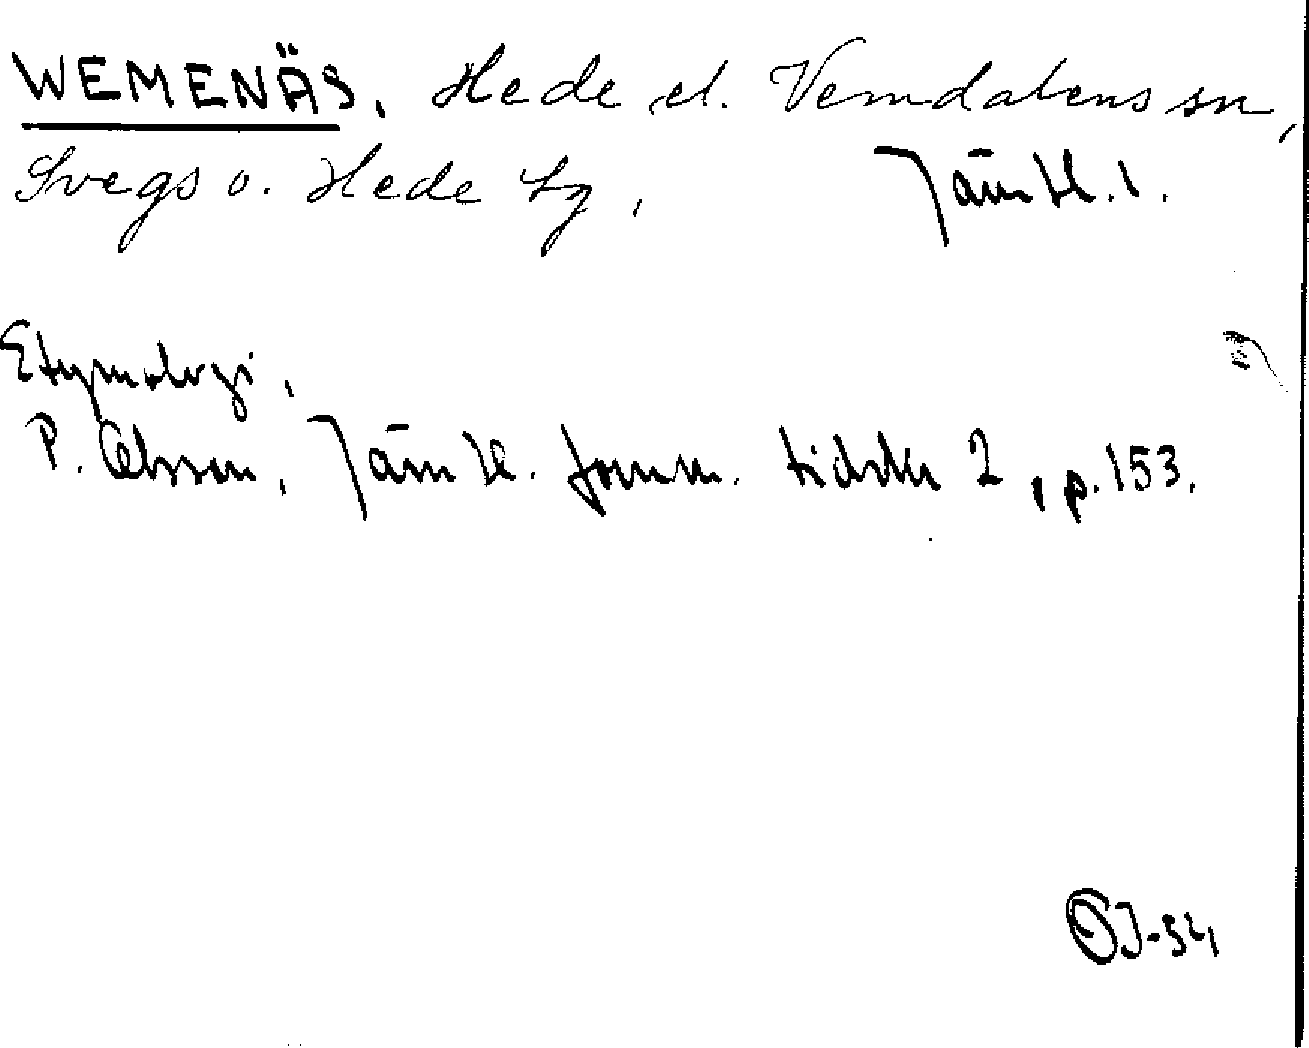 WEMENÄS. Hede el. Vemdalens sn,
Svegs o. Hede tg, Jämtl. l.
Etymologi.
P. Olsson, Jämtl. fornm. tidskr 2, p. 153.